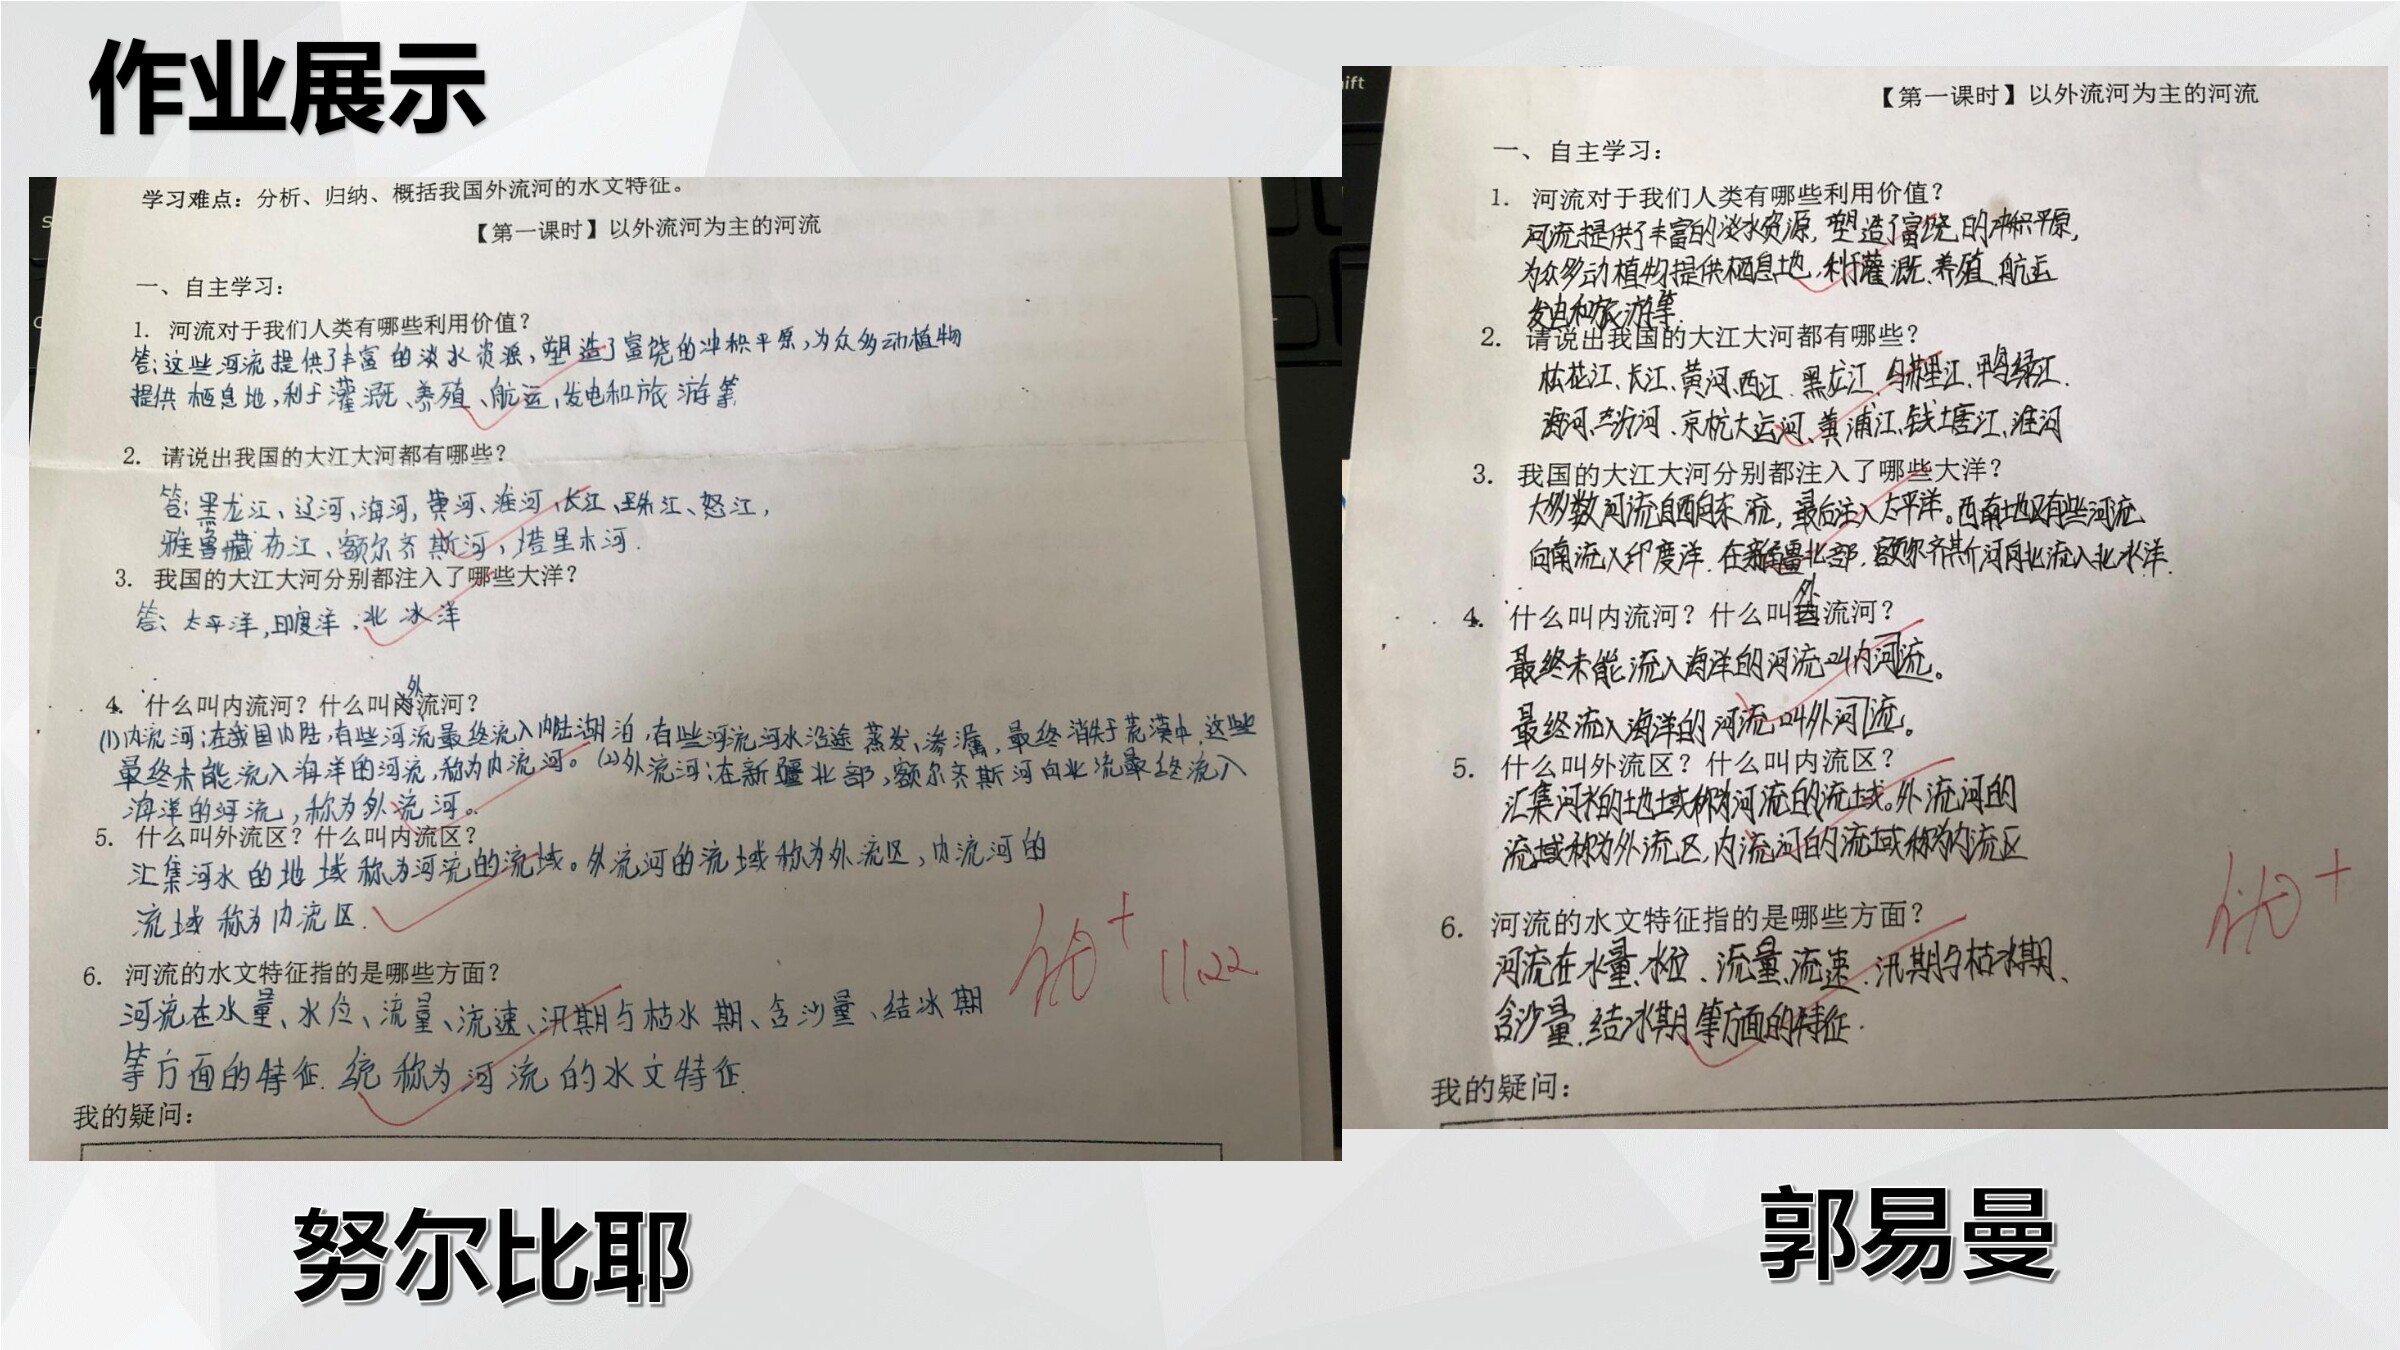 作业展示
学习难点：分析、归纳、概括我国外流河的水文特征。
【第一课时】以外流河为主的河流
一、自主学习：
1. 河流对于我们人类有哪些利用价值？
答：这些河流提供了丰富的淡水资源，塑造了富饶的冲积平原，为众多动植物
提供栖息地，利于灌溉、养殖、航运、发电和旅游等
2. 请说出我国的大江大河都有哪些？
答：黑龙江、辽河、海河，黄河、淮河、长江、珠江、怒江，
雅鲁藏布江、额尔齐斯河，塔里木河.
3. 我国的大江大河分别都注入了哪些大洋？
答：太平洋，印度洋，北冰洋
4. 什么叫内流河？什么叫外流河？
(1)内流河：在我国内陆，有些河流最终流入内陆湖泊，有些河流河水沿途蒸发、渗漏，最终消失于荒漠中，这些
最终未能流入海洋的河流，称为内流河。(2)外流河：在新疆北部，额尔齐斯河向北流最终流入
海洋的河流，称为外流河。
5. 什么叫外流区？什么叫内流区？
汇集河水的地域称为河流的流域。外流河的流域称为外流区，内流河的
流域称为内流区.
6. 河流的水文特征指的是哪些方面？
河流在水量、水位、流量、流速、汛期与枯水期、含沙量、结冰期
等方面的特征.统称为河流的水文特征.
11.22
我的疑问：
努尔比耶
ift
【第一课时】以外流河为主的河流
一、自主学习：
1. 河流对于我们人类有哪些利用价值？
河流提供了丰富的淡水资源，塑造了富饶的冲积平原，
为众多动植物提供栖息地，利于灌溉、养殖、航运
发电和旅游等.
2. 请说出我国的大江大河都有哪些？
松花江、长江、黄河、西江、黑龙江、乌苏里江、鸭绿江.
海河、汾河、京杭大运河、黄浦江、钱塘江、淮河
3. 我国的大江大河分别都注入了哪些大洋？
大多数河流自西向东流，最后注入太平洋。西南地区有些河流
向南流入印度洋.在新疆北部，额尔齐斯河向北流入北冰洋.
4. 什么叫内流河？什么叫外流河？
最终未能流入海洋的河流叫内河流。
最终流入海洋的河流叫外河流。
5. 什么叫外流区？什么叫内流区？
汇集河水的地域称为河流的流域。外流河的
流域称为外流区，内流河的流域称为内流区
6. 河流的水文特征指的是哪些方面？
河流在水量、水位、流量、流速、汛期与枯水期、
含沙量、结冰期等方面的特征.
我的疑问：
郭易曼